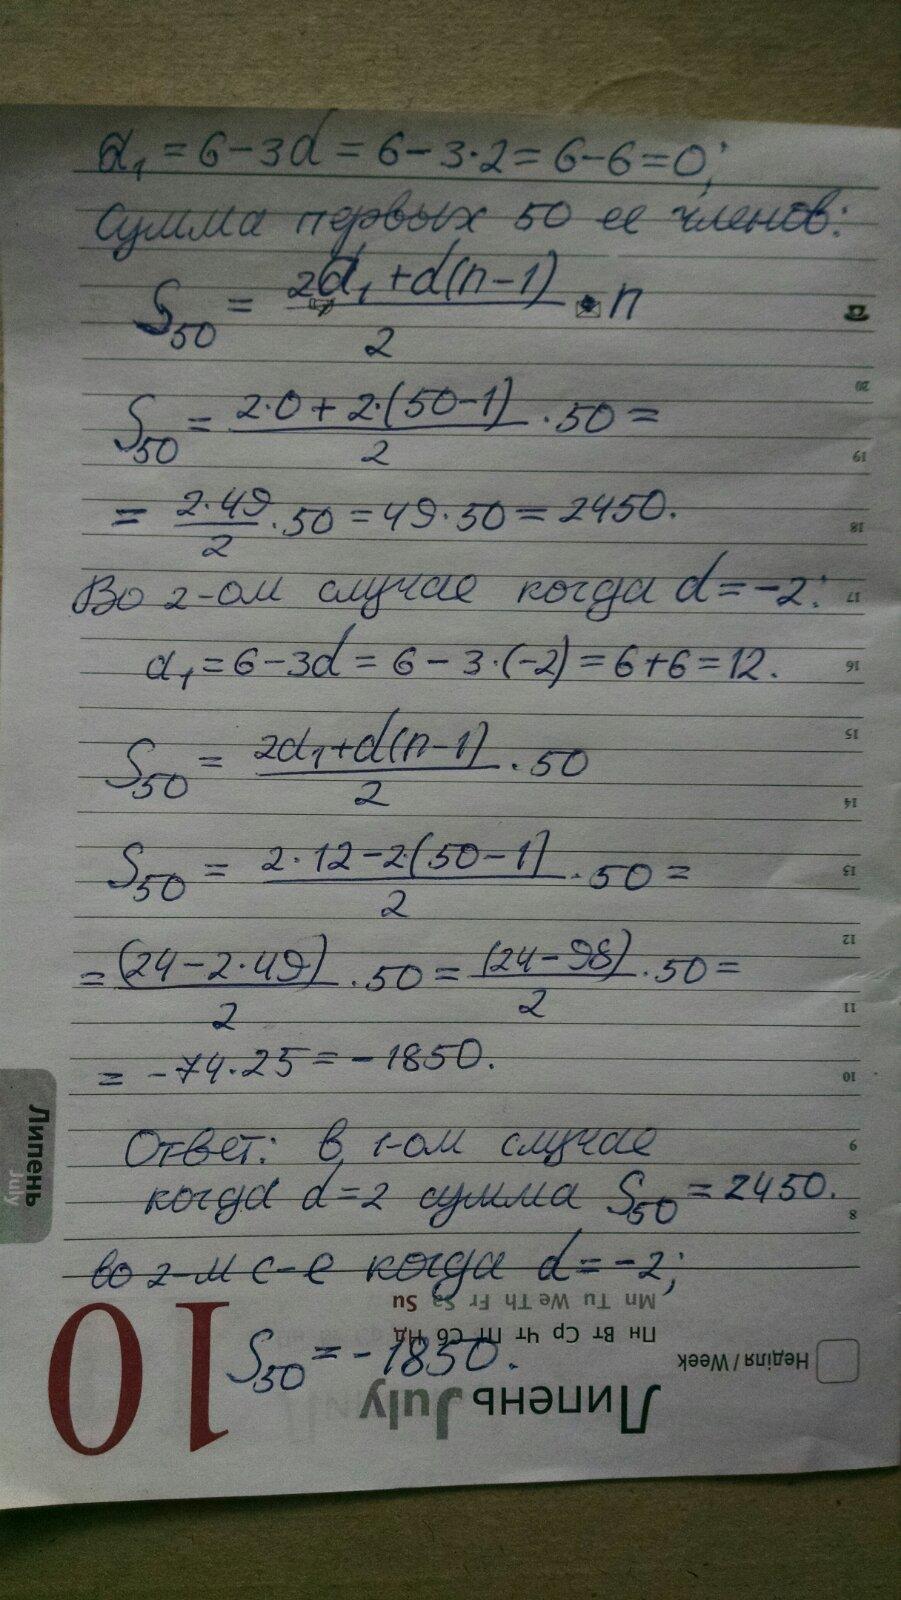 a₁ = 6 - 3d = 6 - 3·2 = 6 - 6 = 0;
Сумма первых 50 ее членов:
S₅₀ = (2a₁ + d(n-1))/2 · n
S₅₀ = (2·0 + 2·(50-1))/2 · 50 =
= (2·49)/2 · 50 = 49·50 = 2450.
Во 2-ом случае когда d = -2:
a₁ = 6 - 3d = 6 - 3·(-2) = 6 + 6 = 12.
S₅₀ = (2a₁ + d(n-1))/2 · 50
S₅₀ = (2·12 - 2·(50-1))/2 · 50 =
= (24 - 2·49)/2 · 50 = (24 - 98)/2 · 50 =
= -74·25 = -1850.
Ответ: в 1-ом случае
когда d = 2 сумма S₅₀ = 2450.
во 2-м с-е когда d = -2;
S₅₀ = -1850.
20
19
18
17
16
15
14
13
12
11
10
9
8
Липень
July
10
Mn Tu We Th Fr Sa Su
Пн Вт Ср Чт Пт Сб Нд
Неділя / Week
Липень July